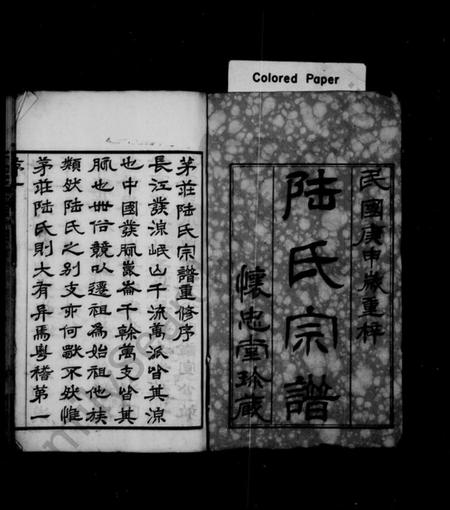 Colored Paper
民國庚申歲重梓
陸氏宗譜
懷忠堂珍藏
茅莊陸氏宗譜重修序
長江發源岷山千流萬派皆其源
也中國發脈崑崙千幹萬支皆其
脈也世俗競以遷祖為始祖他族
類然陸氏之別支亦何獸不然惟
茅莊陸氏則大有異焉粵稽第一